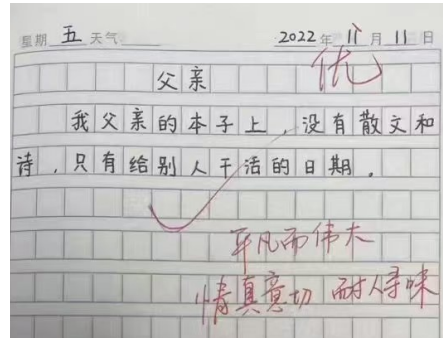 星期 五 天气 2022年 11月 11日
优
父亲
我父亲的本子上，没有散文和
诗，只有给别人干活的日期。
平凡而伟大
情真意切 耐人寻味